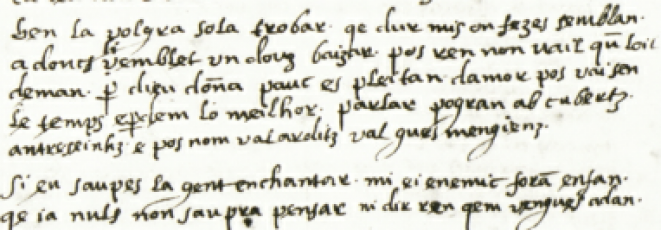 ben la volgra sola trobar. qe dur mis on fezes semblan.
adoncs vemblet un dolz baizar. pos ren non vail qan loil
deman. p dieu dona pauc es pleitan damor pos vai sen
le temps epdem lo meilhor. parlar pogran ab cubertz.
antreseinhz. e pos nom val arditz val gues mengienz.
Si eu saupes la gent enchantar. mi ei enemic foran enfan.
qe ia nuls non saupra pensar ni dir ren qem vengues adan.